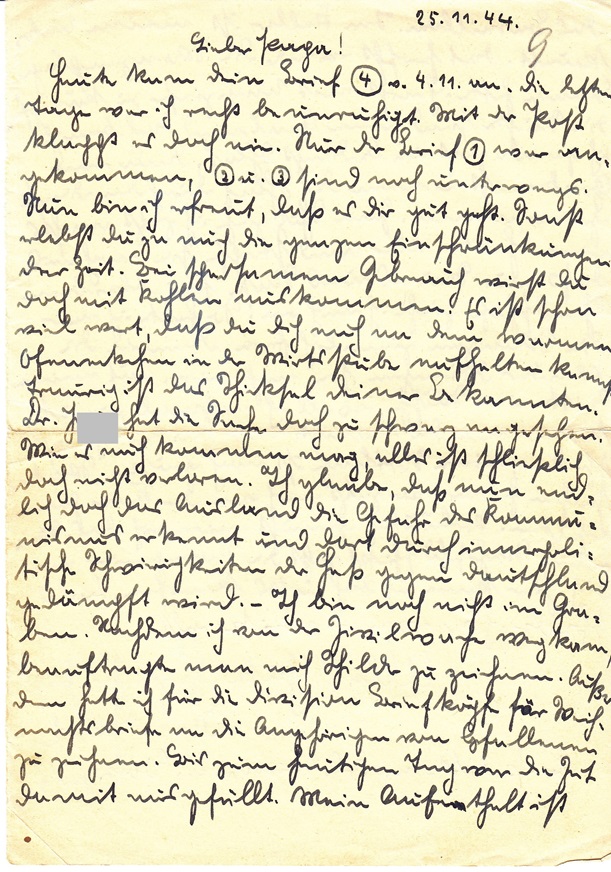 25.11.44.
9
Lieber Papa!
Heute kam dein Brief ④ v. 4.11. an. Die letzten
Tage war ich recht beunruhigt. Mit der Post
klappt es doch nie. Nur der Brief ① war an-
gekommen, ② u. ③ sind noch unterwegs.
Nun bin ich erfreut, daß es dir gut geht. Sonst
erlebst du ja auch die ganzen Einschränkungen
der Zeit. Bei sparsamem Gebrauch wirst du
doch mit Kohlen auskommen! Es ist schon
viel wert, daß du dich auch an dem warmen
Ofeneckchen in der Wirtsstube aufhalten kannst
Traurig ist das Schicksal deiner Bekannten.
Dr. J hat die Sache doch zu schwarz angesehen.
Wie es auch kommen mag, alles ist schließlich
doch nicht verloren. Ich glaube, daß nun end-
lich doch das Ausland die Gefahr des Kommu-
nismus erkennt und dort durch innerpoli-
tische Schwierigkeiten der Haß gegen Deutschland
gedämpft wird. – Ich bin noch nicht im Gra-
ben. Nachdem ich von der Zivilwache wegkam,
beauftragte man mich Schilder zu zeichnen. Außer
dem hatte ich für die Division Briefköpfe für Weih-
nachtsbriefe an die Angehörigen von Gefallenen
zu zeichnen. Bis zum heutigen Tag war die Zeit
damit ausgefüllt. Mein Aufenthalt ist